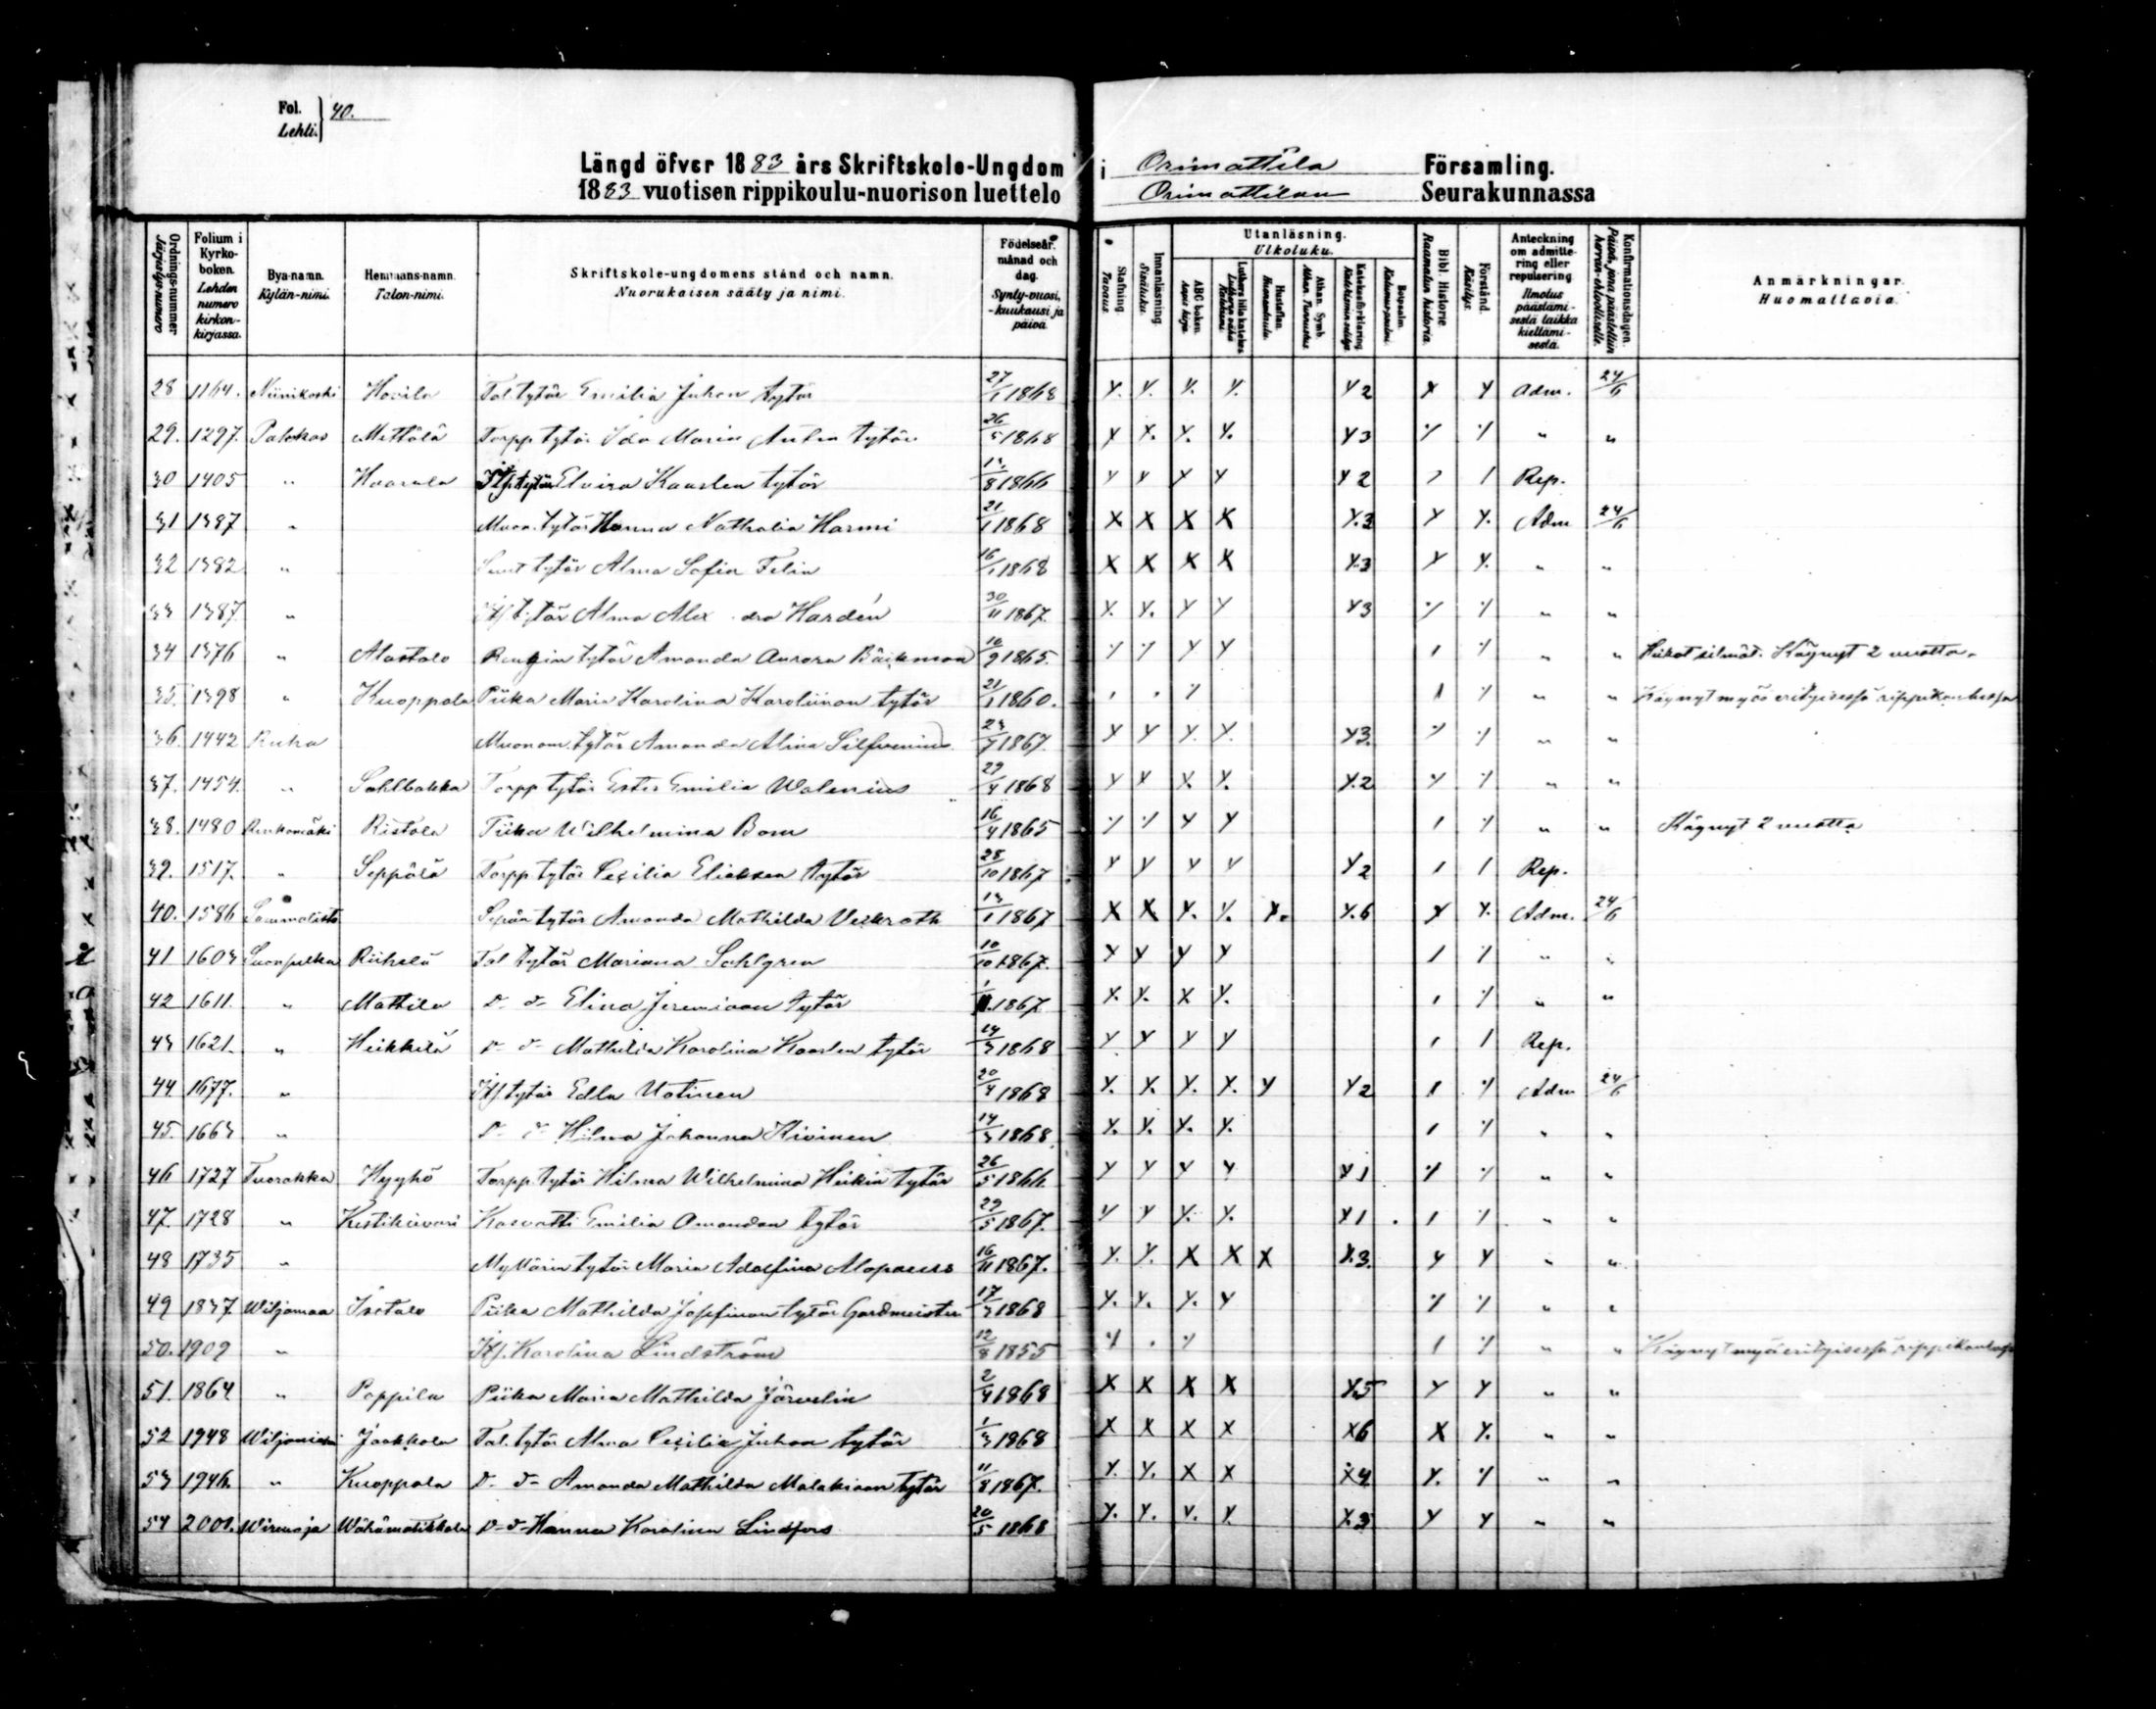 Fol. 40.
Lehti.
Längd öfver 1883 års Skriftskole-Ungdom i Orimattila Församling.
1883 vuotisen rippikoulu-nuorison luettelo Orimattilan Seurakunnassa
Ordnings-nummer Järjestys-numero
Folium i Kyrko-boken. Lehden numero kirkon-kirjassa.
Bya-namn. Kylän-nimi.
Hemmans-namn. Talon-nimi.
Skriftskole-ungdomens stånd och namn. Nuorukaisen sääty ja nimi.
Födelseår, månad och dag. Synty-vuosi, -kuukausi ja päivä.
Stafning. Tavaus.
Innanläsning. Sisäluku.
Utanläsning. Ulkoluku.
ABC boken. Aapis kirja.
Luthers lilla katekes
Hustaflan. Huoneentaulu.
Athan. Symb. Athan. Tunnustus.
Katekesförklaring. Katekismin selitys
Botpsalm. Katumus-psalmi.
Bibl. Historie Raamatun historia.
Förstånd. Käsitys.
Anteckning om admitte-ring eller repulsering. Ilmoitus päästämi-sestä taikka kieltämi-sestä.
Konfirmationsdagen. Päivä, jona päästettiin herran-ehtoolliselle.
Anmärkningar. Huomattavia.
28 1164. Niinikoski Hovila Tal. tytär Emilia Juhon tytär 27/1 1868 Y. Y. Y. Y. Y2 X Y Adm. 24/6
29. 1297. Mattälä Torpp. tytär Ida Maria tytär 26/5 1868 Y X. Y. Y. Y3 ٪ ٪ " "
30 1405 " Haarala Elvira Kaarlen tytär 8 1866 Y Y Y Y Y2 / / Rep.
31 1387 " Muon. tytär Hanna Nathalia Harmi 21/1 1868 X X X X Y.3 Y Y. Adm 24/6
32 1382 " tytär Alma Sofia Felin 16/1 1868 X X X X Y.3 Y Y. " "
33 1387. " Its. tytär Alma Alex dra Hardén 30/11 1867. Y. Y. Y Y Y3 ٪ ٪ " "
34 1376 " Alastalo Rengin tytär Amanda Aurora Bäckman 10/9 1865. ٪ ٪ Y Y / ٪ " " Heikot silmät. Käynyt 2 vuotta.
35. 1398 " Kuoppala Piika Maria Karolina Karoliinan tytär 21/1 1860. / ٪ " " Käynyt myös erityisessä rippikoulussa
36. 1442 Ruha Muonam. tytär Amanda Alina Silfvenius 1867. Y Y Y. Y. Y3. ٪ ٪ " "
37. 1454. " Sahlbakka Torpp tytär Ester Emilia Walenius 29/4 1868 Y Y X. Y. Y.2 ٪ ٪ " "
38. 1480 Ruhamäki Ristola Piika Wilhelmina Bom 16/4 1865 ٪ ٪ Y Y / ٪ " " Käynyt 2 vuotta
39. 1517. " Seppälä Torpp. tytär Cecilia Eliaksen tytär 28/10 1867 Y Y Y Y Y2 / / Rep.
40. 1586 Sammalisto Sepän tytär Amanda Mathilda Veckroth 13/1 1867 X X Y. Y. Y. Y.6 X Y. Adm. 24/6
41 1603 Suonpelka Riihelä Tal tytär Mariana Sahlgren 10/10 1867. Y Y Y Y / ٪ " "
42 1611. " Mattila D. d. Elina Jeremiaan tytär 1867 X. Y. X Y. / ٪ " "
43 1621. " Heikkilä D. d. Mathilda Karolina Kaarlen tytär 14/3 1868 Y Y Y Y / / Rep.
44 1677. " Itsl. tytär Edla Uotinen 20/4 1868 Y. X. Y. X. Y Y2 / ٪ Adm 24/6
45. 1663 " D. d. Hilma Johanna Kivinen 14/3 1868 X. Y. Y. Y. / ٪ " "
46 1727 Tuorakka Hyyhö Torpp. tytär Hilma Wilhelmina Heikin tytär 26/5 1866. Y Y Y Y Y1 ٪ ٪ " "
47. 1728 " Kestikievari Kasvatti Emilia Amandan tytär 29/5 1867. Y Y Y. Y. Y1 / ٪ " "
48 1735 " Myllärin tytär Maria Adolfina Alopaeus 16/11 1867. Y. Y. X X X Y.3. Y Y " "
49 1837 Wiljamaa Isotalo Piika Mathilda Josefinan tytär Gardmeister 17/3 1868 Y. Y. Y. Y ٪ ٪ " "
50. 1909 " Itsl. Karolina Lindström 12/8 1855 ٪ . ٪ / ٪ " " Käynyt myös erityisessä rippikoulussa
51. 1864 " Pappila Piika Maria Mathilda Järvelin 2/4 1868 X X X X Y.5 Y Y " "
52 1948 Wiljaniemi Jaakkola Tal. tytär Alma Cecilia Juhon tytär 1/3 1868 X X X X X6 X Y. " "
53 1946. " Kuoppala D. d. Amanda Mathilda Malakiaan tytär 11/8 1867. Y. Y. X X X4 Y. ٪ " "
54 2001. Wirenoja Wähämatikkala D. d. Hanna Karolina Lindfors 20/5 1868 Y. Y. Y. Y. Y.3 Y Y " "